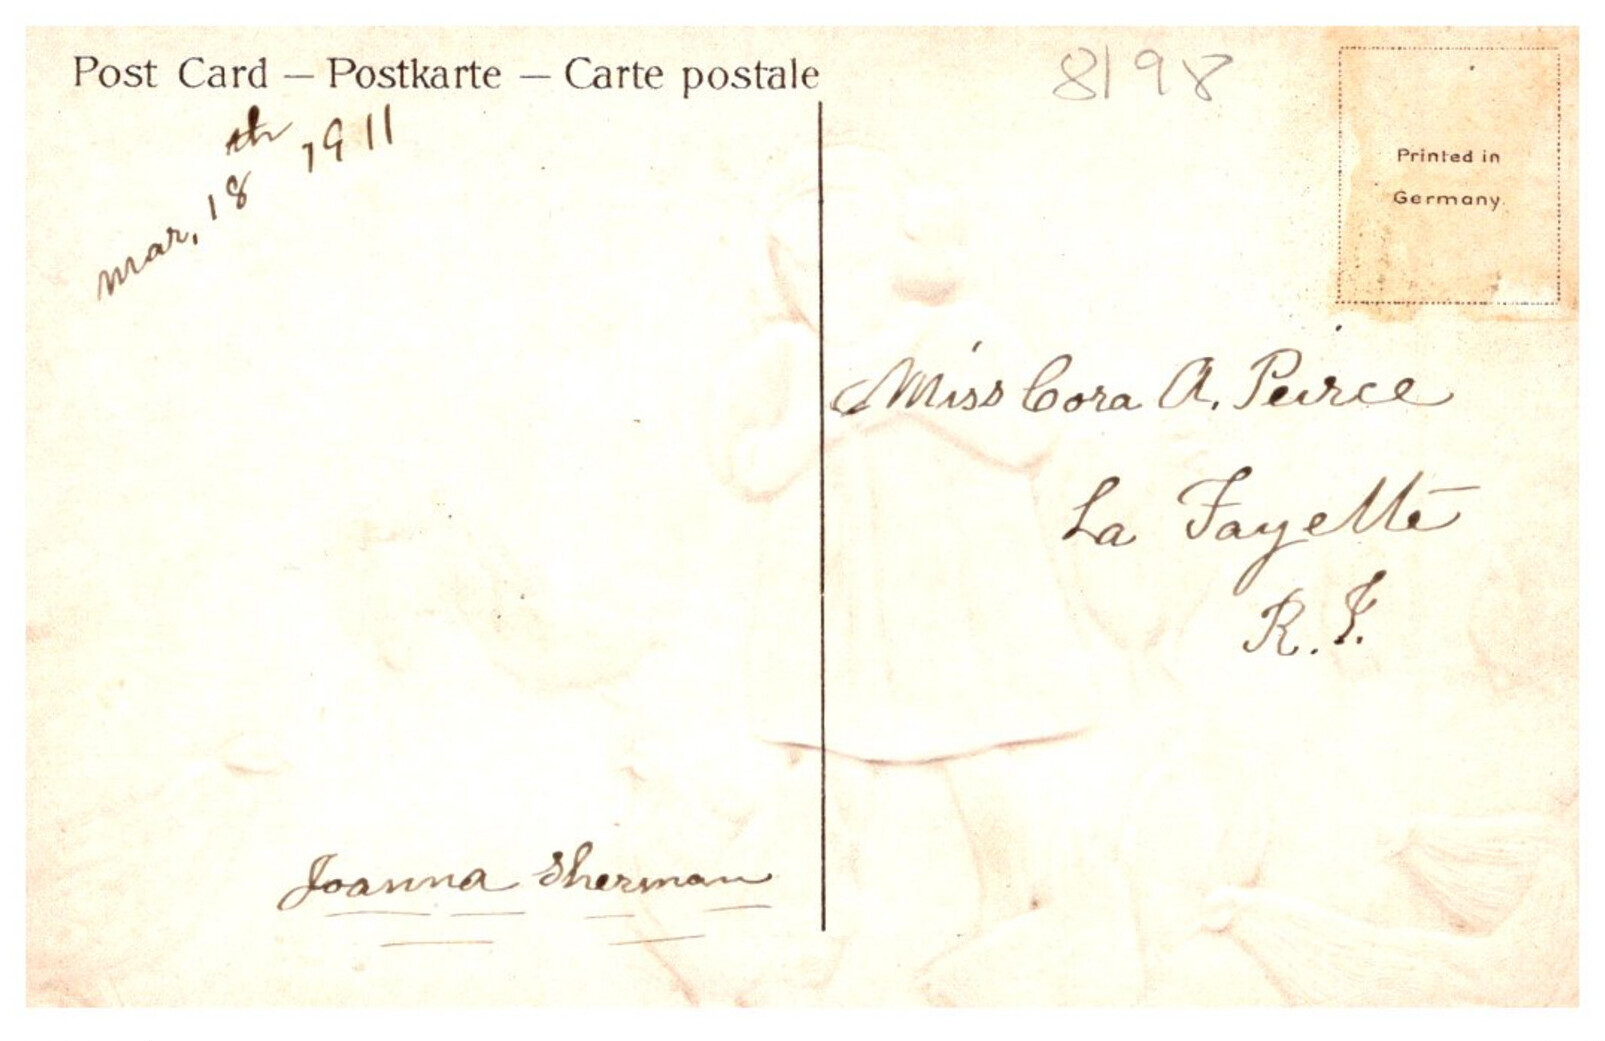 Post Card – Postkarte – Carte postale
8198
Printed in
Germany.
Mar, 18th 1911
Miss Cora A. Peirce
La Fayette
R.I.
Joanna Sherman